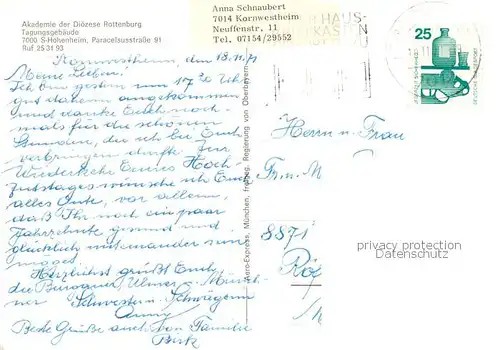 Akademie der Diözese Rottenburg
Tagungsgebäude
7000 S-Hohenheim, Paracelsusstraße 91
Ruf 25 31 93
Anna Schnaubert
7014 Kornwestheim
Neuffenstr. 11
Tel. 07154/29552
HAUS-
KASTEN
25
Kornwestheim, 18.11.71
Meine Lieben!
Ich bin gestern um 17.20 Uhr
gut daheim angekommen
und danke Euch noch-
mals für die schönen
Stunden, die ich bei Euch
verbringen durfte. Zur
Wiederkehr Eueres Hoch-
zeitstages wünsche ich Euch
alles Gute, vor allem,
daß Ihr noch ein paar
Jahrzehnte gesund und
glücklich miteinander sein
möget.
Herzlichst grüßt Euch,
die Ulmer- u. Münch-
ner Schwestern, Schwägerin
Anny
Beste Grüße auch von Familie
Birk
Aero-Express, München, freigeg. Regierung von Oberbayern
Herrn u. Frau
Fr. u. M
8871
privacy protection
Datenschutz